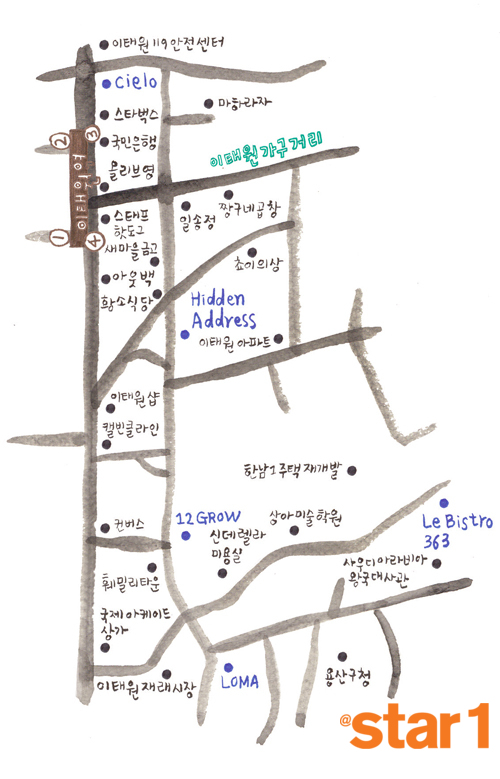 이태원 119 안전센터
Cielo
스타벅스
마하라자
②
③
국민은행
올리브영
이태원 가구거리
이태원역
일송정
짱구네곱창
스테프
핫도그
새마을금고
①
④
초이의상
아웃백
황소식당
Hidden
Address
이태원 아파트
이태원샵
캘빈클라인
한남1주택재개발
12GROW
상아미술학원
Le Bistro
363
컨버스
신데렐라
미용실
사우디아라비아
왕국대사관
훼밀리타운
국제아케이드
상가
이태원 재래시장
LOMA
용산구청
@star1